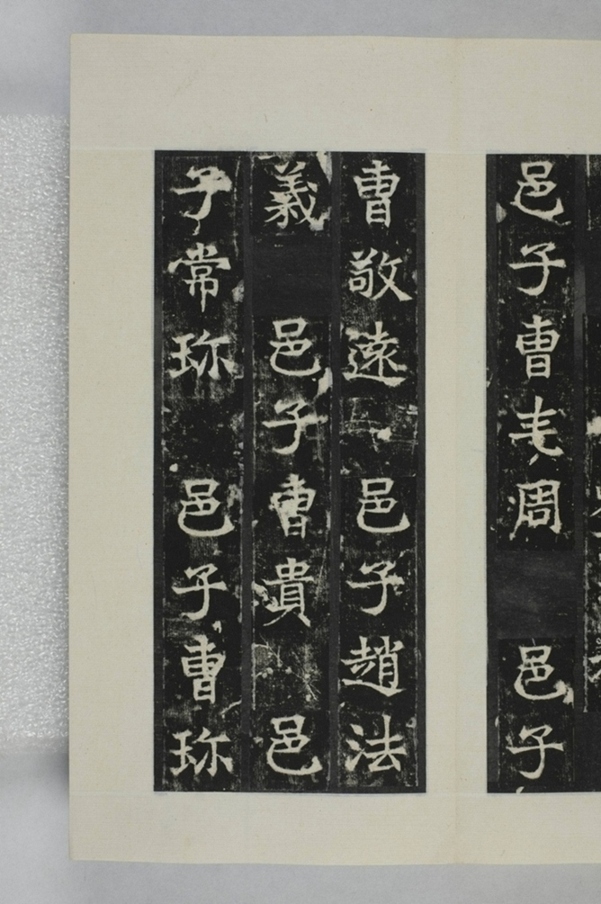 邑子曺毛周 邑子
曺敬遠 邑子趙法
義 邑子曺貴 邑
子常珎 邑子曺珎